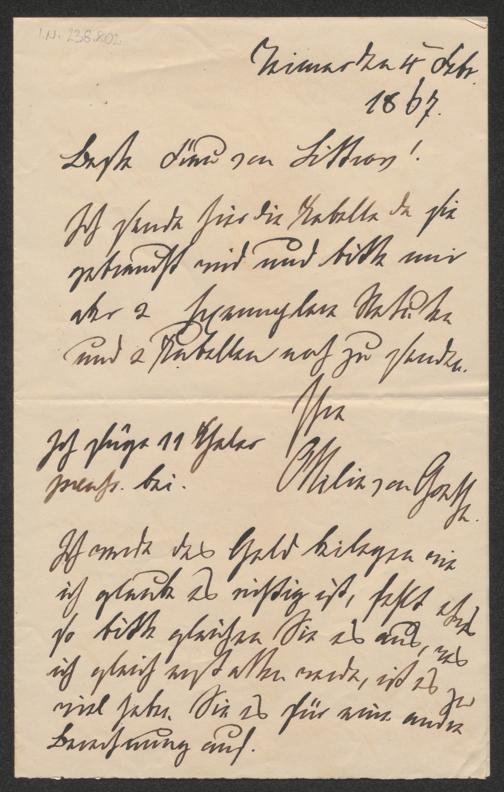 I.N. 238.802
Weimar den 4 Febr.
1867.
Beste Frau von Littrow!
Ich sende hier die Tabelle da sie
gebraucht wird und bitte mir
aber 2 Exemplare Statuten
und 2 Tabellen noch zu senden.
Ihre
Ich füge 11 Thaler
preuss. bei.
Ottilie von Goethe
Ich werde das Geld beilegen wie
ich glaube es richtig ist, fehlt etwas
so bitte gleichen Sie es aus, was
ich gleich erstatten werde, ist es zu
viel heben Sie es für eine andre
Berechnung auf.